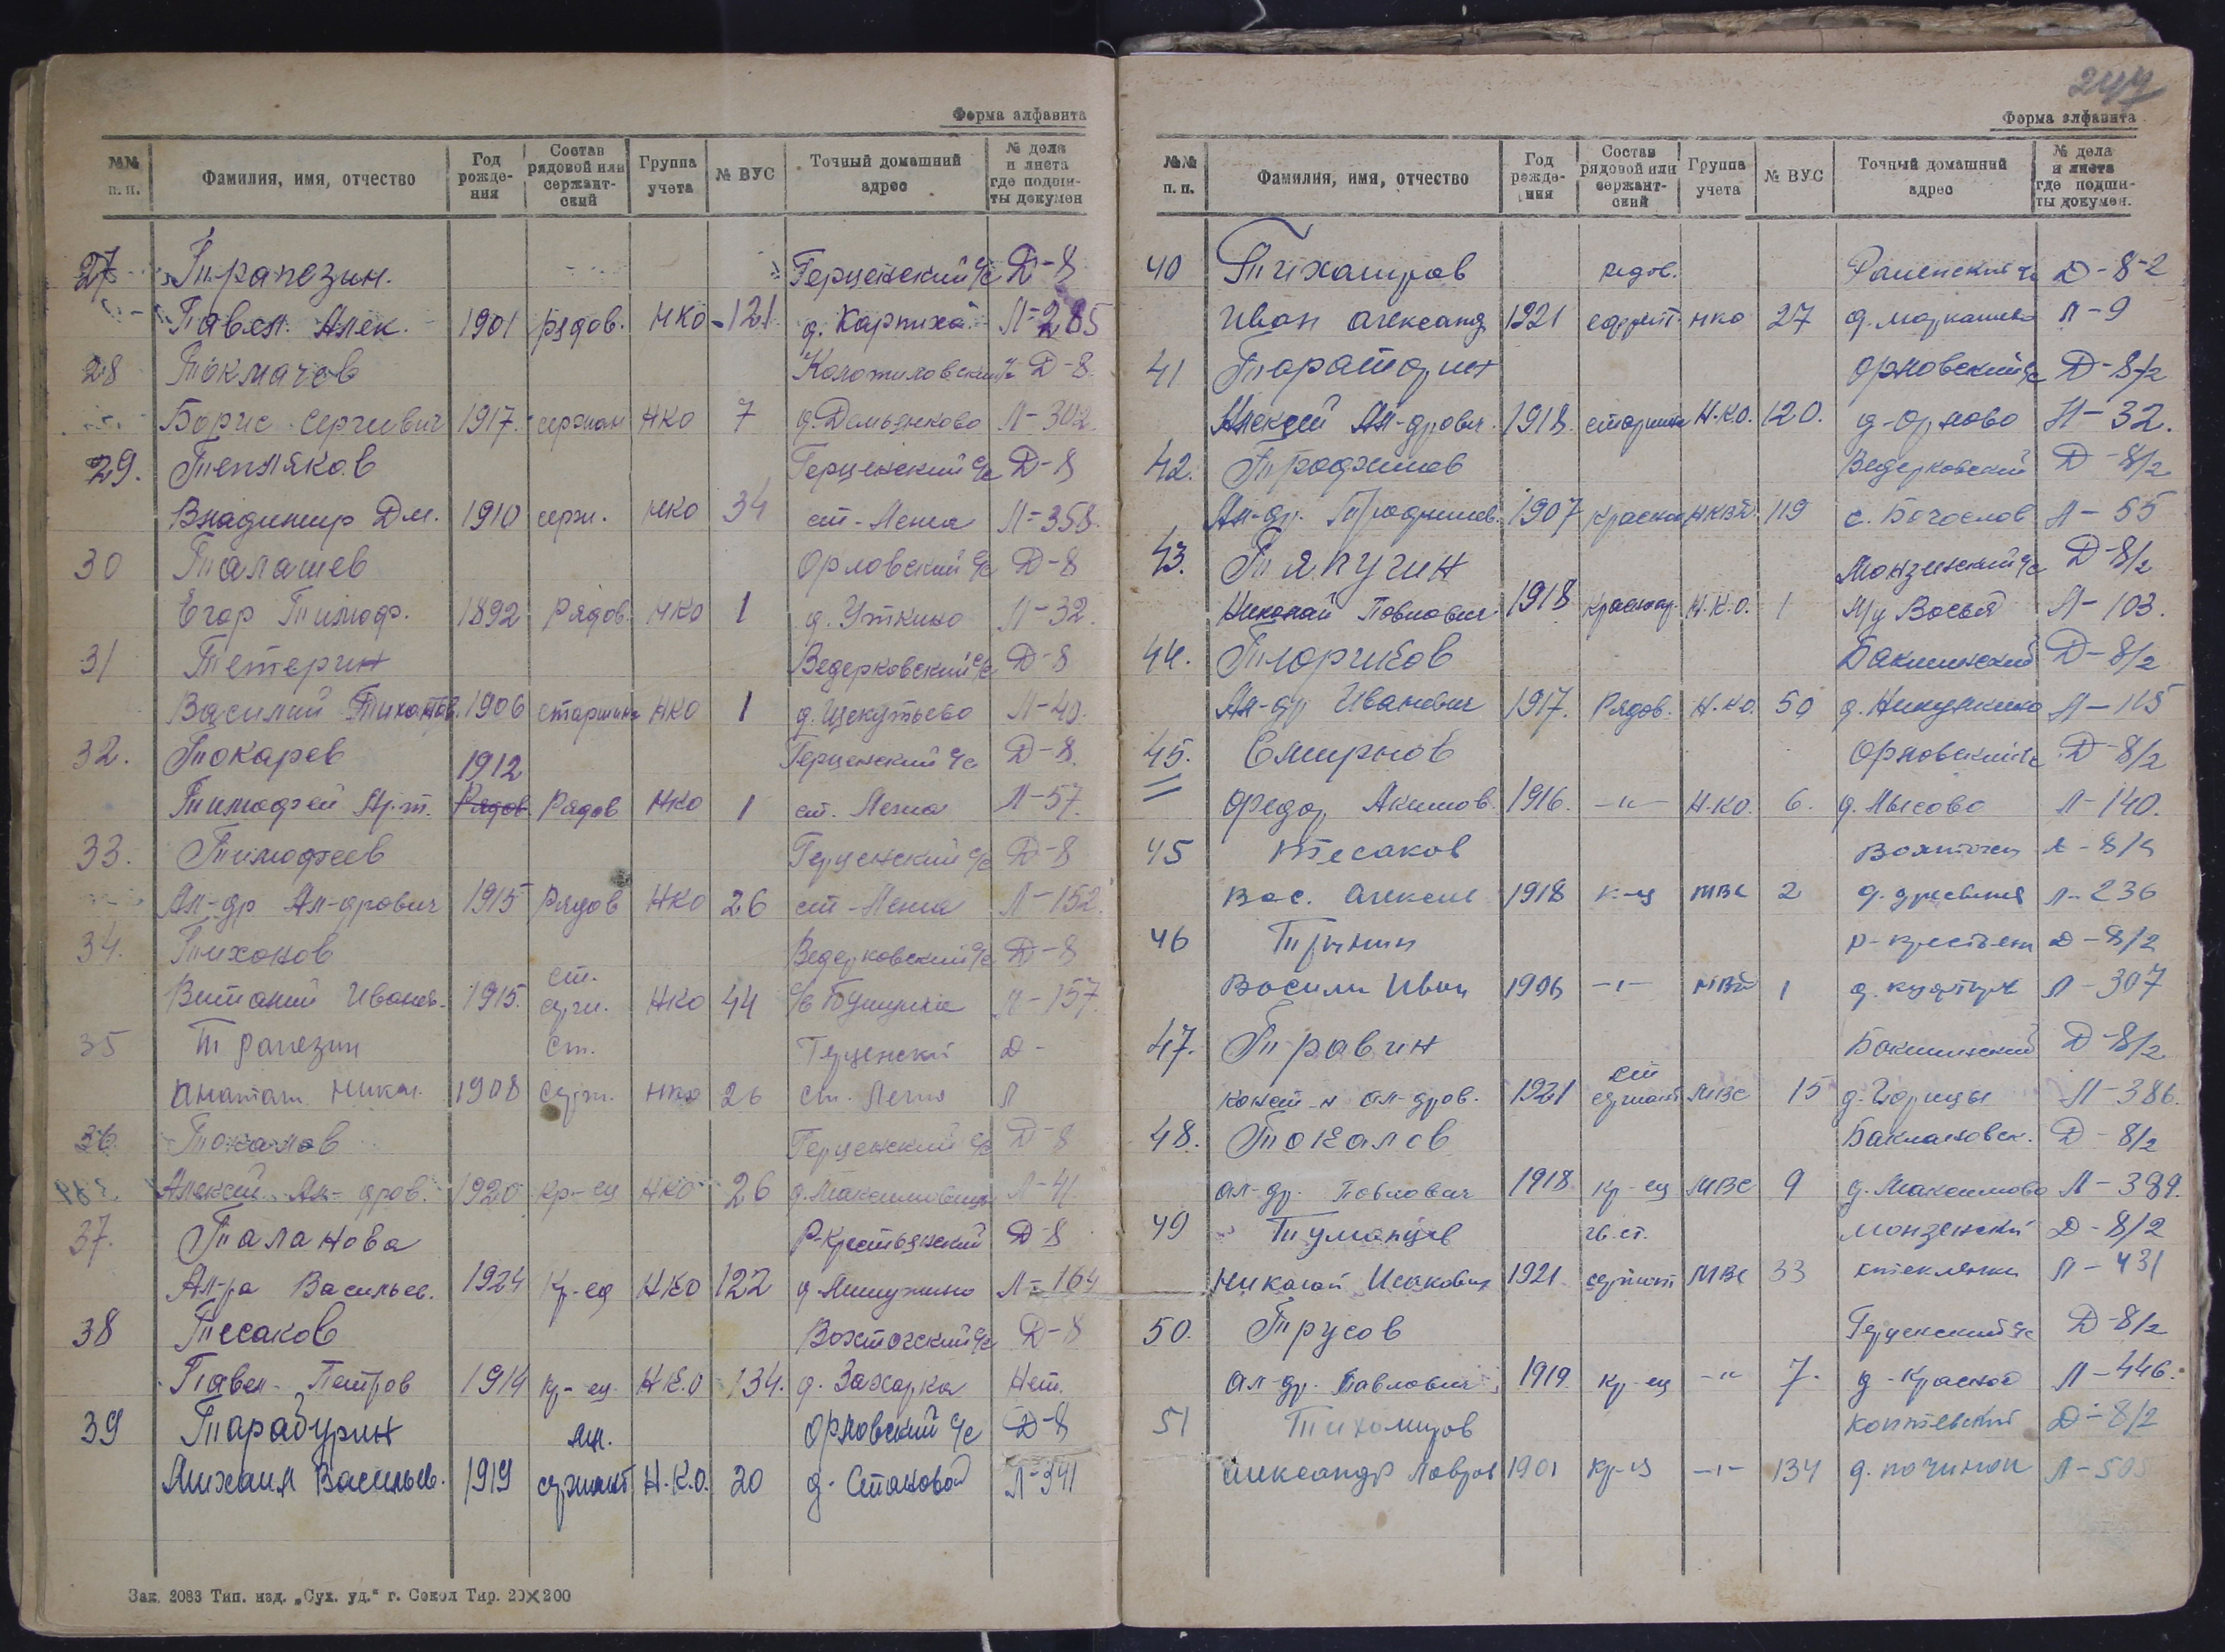 Форма алфавита
№№ п. п. Фамилия, имя, отчество Год рожде- ния Состав рядовой или сержант- ский Группа учета № ВУС Точный домашний адрес № дела и листа где подши- ты докумен
27 Трапезин. Герценский с/с Д-8
Павел Алек. 1901 рядов. НКО 121 д. Карпиха Л-285
28 Токмачев Д-8
Борис Сергеевич 1917 сержан НКО 7 д. Демьянково Л-302
29. Тепляков Герценский с/с Д-8
Владимир Дм. 1910 серж. НКО 34 ст-Лежа Л-358
30 Талашев Орловский с/с Д-8
Егор Тимоф. 1892 Рядов. НКО 1 д. Уткино Л-32.
31 Тетерин Ведерковский с/с Д-8
Василий 1906 старшина НКО 1 Л-40.
32. Токарев 1912 Герценский с/с Д-8.
Тимофей Ар.т. Рядов Рядов НКО 1 ст. Лежа Л-57.
33. Тимофеев Герценский с/с Д-8
Ал-др Ал-дрович 1915 Рядов НКО 26 ст-Лежа Л-152
34. Тихонов Ведерковский с/с Д-8
Виталий Иванов. 1915. ст. серж. НКО 44 Л-157.
35 Трапезин ст. Герценский Д-
Анатол. Никол. 1908 серж. НКО 26 ст. Лежа Л
36. Токалов Герценский с/с Д-8
Алексей Ал-дров. 1920 кр-ец НКО 26 Л-41.
37. Таланова Р-Крестьянский Д-8
Ал-ра Васильев. 1924 Кр-ец НКО 122 Л-164
38 Тесаков Вохтогский с/с Д-8
Павел Петров 1914 кр-ец Н.К.О 134. д. Захарка Нет.
39 Тарабурин мл. Орловский с/с Д-8
Михаил Васильев. 1919 сержант Н.К.О. 20 д. Становой Л-341
Зак. 2083 Тип. изд. „Сух. уд.“ г. Сокол Тир. 20×200
Форма алфавита
№№ п. п. Фамилия, имя, отчество Год рожде- ния Состав рядовой или сержант- ский Группа учета № ВУС Точный домашний адрес № дела и листа где подши- ты докумен.
40 Тихомиров рядов. Раменский с/с Д-8-2
Иван Александ 1921 ефрейт. НКО 27 Л-9
41 Орловский с/с Д-8/2
Алексей Ал-дрович. 1918. старшина Н.К.О. 120. д-Орлово Л-32.
42. Трофимов Ведерковский Д-8/2
Ал-др. Трофимов. 1907 119 с. Богослов Л-55
43. Тяпугин Монзенский с/с Д-8/2
Николай Павлович 1918 Краснар. Н.К.О. 1 Л-103.
44. Тюриков Бакшинский Д-8/2
Ал-др Иванович 1917. Рядов. Н.К.О. 50 Л-115
45. Смирнов Орловский с/с Д-8/2
Федор Акимов. 1916. -"- Н.КО. 6. д. Лысово Л-140.
45 Тесаков Д-8/2
Вас. Алексее 1918 к-ец МВС 2 Л-236
46 р-крестьян Д-8/2
Василий Иван 1906 -"- 1 Л-307
47. Травин Бакшинский Д-8/2
Конст-н Ал-дров. 1921 ст сержант МВС 15 Л-386.
48. Токалов Баклановск. Д-8/2
Ал-др. Павлович 1918 кр-ец МВС 9 д. Максимово Л-389.
49 Туманцев гв. ст. Монзенский Д-8/2
Николай Исакович 1921 сержант МВС 33 Л-431
50. Трусов Герценский с/с Д-8/2
Ал-др. Павлович 1919 кр-ец -"- 7. Л-446.
51 Тихомиров Д-8/2
Александр Лавров 1901 кр-ец -"- 134 д. Починок